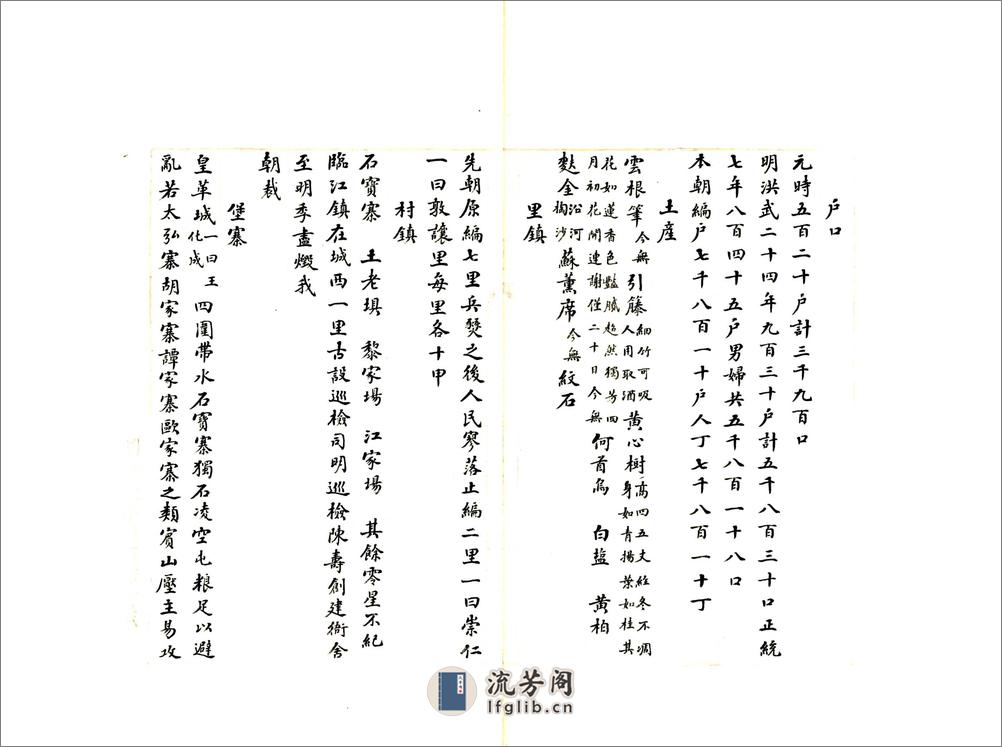 户口
元時五百二十户計三千九百口
明洪武二十四年九百三十户計五千八百三十口正統
七年八百四十五户男婦共五千八百一十八口
本朝編户七千八百一十户人丁七千八百一十丁
土産
雲根筆今無引籐細竹可吸人用取酒黄心樹高四五丈經冬不凋身如青揚葉如桂其
花如蓮香色豔膩超然獨芳四月初花開連謝僅二十日今無何首烏 白鹽 黄柏
麩金沿河掏沙蘇薰席今無紋石
里鎮
先朝原編七里兵燹之後人民寥落止編二里一曰崇仁
一曰敦讓里每里各十甲
村鎮
石寶寨 土老垻 黎家場 江家場 其餘零星不紀
臨江鎮在城西一里古設巡檢司明巡檢陳壽創建衙舍
至明季盡燬我
朝裁
堡寨
皇華城一曰王化城四圍帶水石寶寨獨石凌空屯粮足以避
亂若太弘寨胡家寨譚家寨歐家寨之類賓山壓主易攻
流芳阁
lfglib.cn